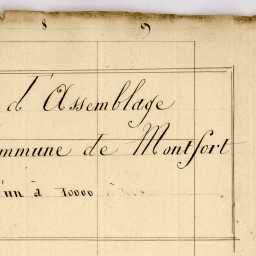 8 9
d'Assemblage
ommune de Montfort
d'un à 10000